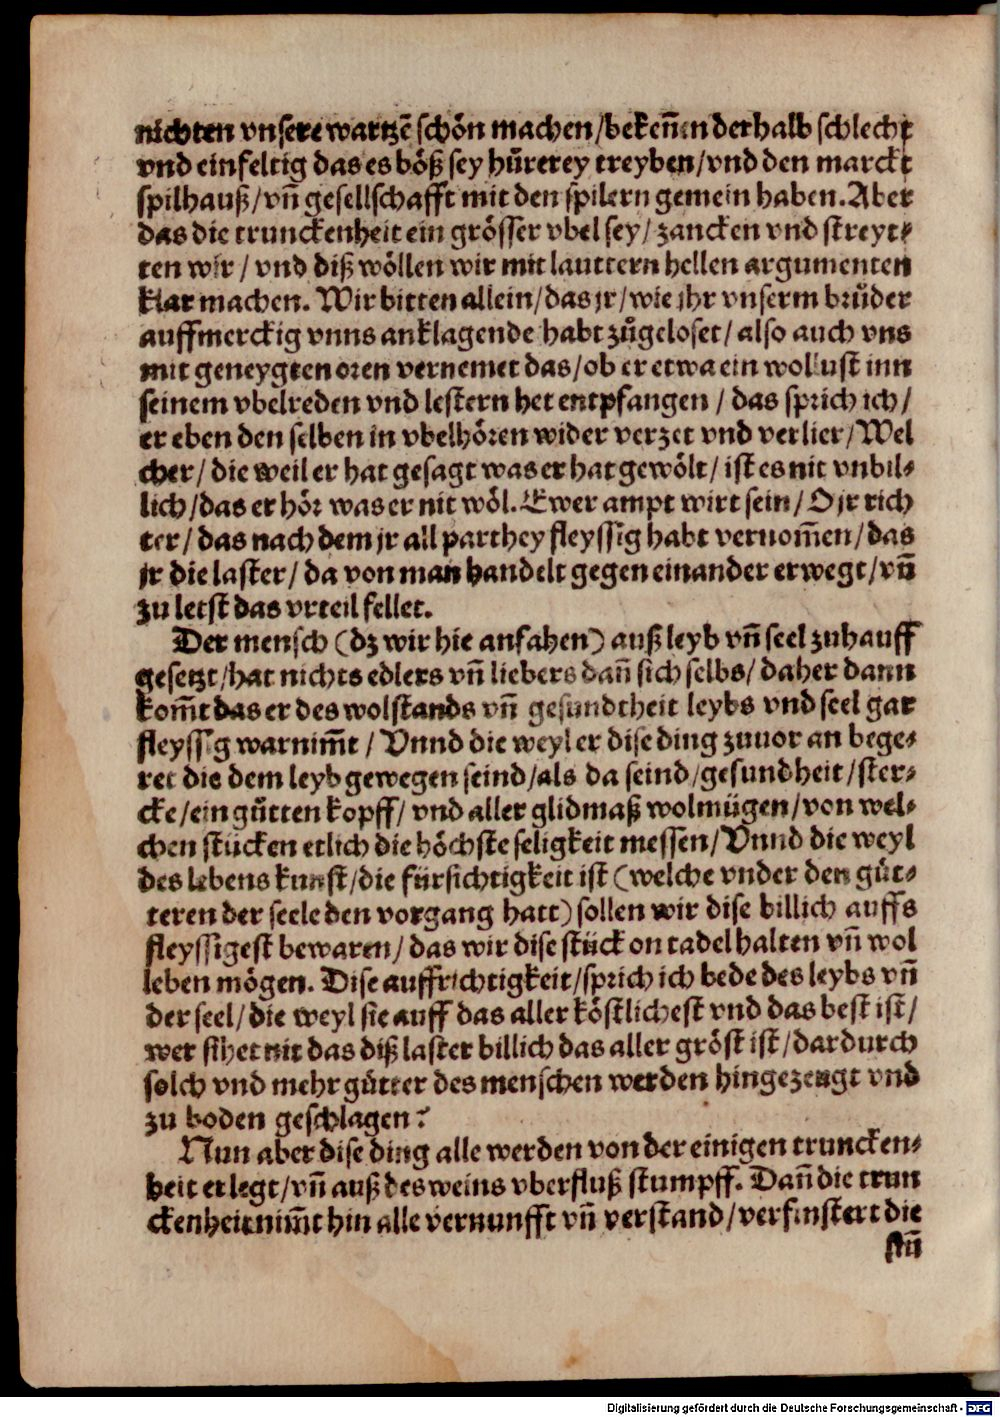 nichten vnsere wartzē schön machen/bekeñen derhalb schlecht
vnd einfeltig das es böß sey hůrerey treyben/vnd den marckt
spilhauß/vñ gesellschafft mit den spilern gemein haben. Aber
das die trunckenheit ein grösser vbel sey/ zancken vnd streyt⸗
ten wir / vnd diß wöllen wir mit lauttern hellen argumenten
klar machen. Wir bitten allein/das jr/wie jhr vnserm brůder
auffmerckig vnns anklagende habt zůgeloset/ also auch vns
mit geneygten oren vernemet das/ob er etwa ein wollust inn
seinem vbelreden vnd lestern het entpfangen / das sprich ich/
er eben den selben in vbelhören wider verzet vnd verlier/Wel
cher/ die weil er hat gesagt was er hat gewölt/ ist es nit vnbil⸗
lich/das er hör was er nit wöl. Ewer ampt wirt sein/ O jr rich
ter/ das nach dem jr all parthey fleyssig habt vernom̃en/das
jr die laster/ da von man handelt gegen einander erwegt/vñ
zu letst das vrteil fellet.
Der mensch (dz wir hie anfahen) auß leyb vñ seel zuhauff
gesetzt/hat nichts edlers vñ liebers dañ sich selbs/ daher dann
kom̃t das er des wolstands vñ gesundtheit leybs vnd seel gar
fleyssig warnim̃t / Vnnd die weyl er dise ding zuuor an bege⸗
ret die dem leyb gewegen seind/als da seind/gesundheit/ster⸗
cke/ein gůtten kopff/ vnd aller glidmaß wolmügen/von wel⸗
chen stücken etlich die höchste seligkeit messen/Vnnd die weyl
des lebens kunst/die fürsichtigkeit ist (welche vnder den gůt⸗
teren der seele den vorgang hatt) sollen wir dise billich auffs
fleyssigest bewaren/ das wir dise stück on tadel halten vñ wol
leben mögen. Dise auffrichtigkeit/sprich ich bede des leybs vñ
der seel/ die weyl sie auff das aller köstlichest vnd das best ist/
wer sihet nit das diß laster billich das aller gröst ist/dardurch
solch vnd mehr gůtter des menschen werden hingezeugt vnd
zu boden geschlagen?
Nun aber dise ding alle werden von der einigen truncken⸗
heit erlegt/vñ auß des weins vberfluß stumpff. Dañ die trun
ckenheit nim̃t hin alle vernunfft vñ verstand/verfinstert die
stiñ
Digitalisierung gefördert durch die Deutsche Forschungsgemeinschaft - DFG